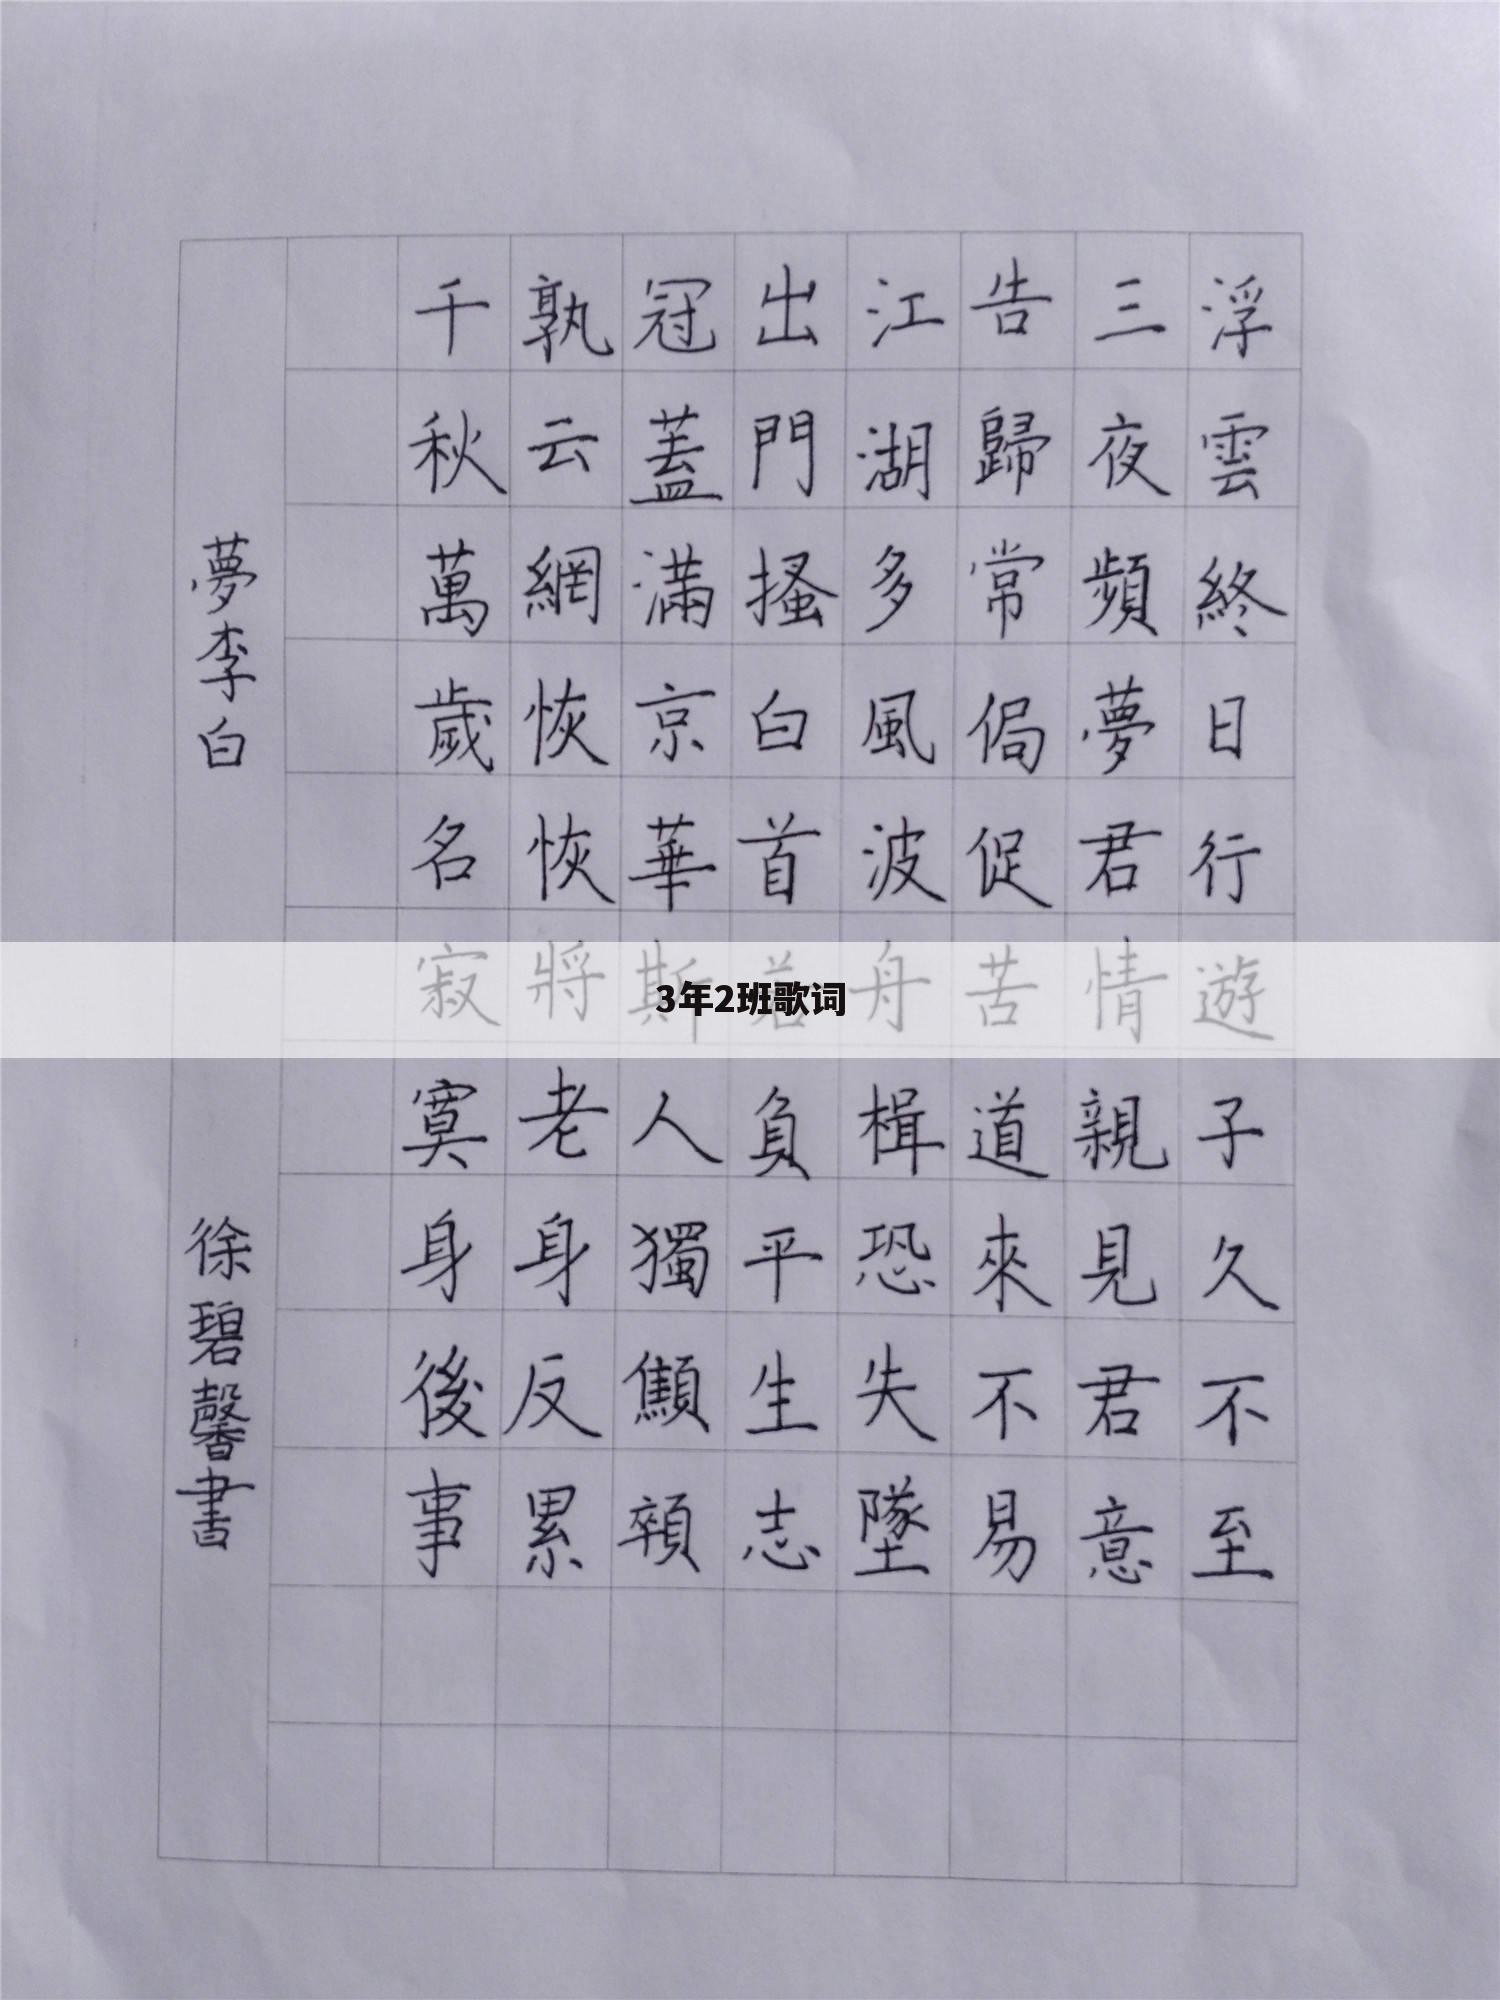 浮雲終日行遊子久不至
三夜頻夢君情親見君意
告歸常侷促苦道來不易
江湖多風波舟楫恐失墜
出門搔白首若負平生志
冠蓋滿京華斯人獨顦顇
孰云網恢恢將老身反累
千秋萬歲名寂寞身後事
夢李白
徐碧馨書
3年2班歌词